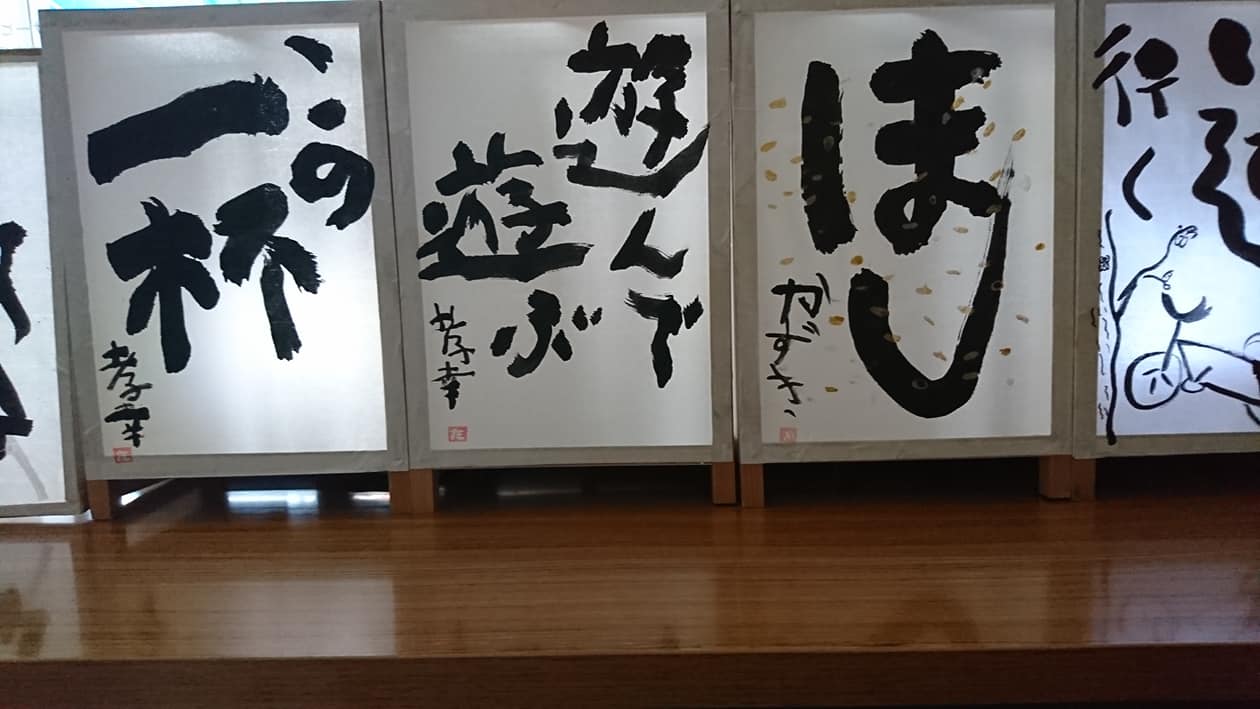 この
一杯
孝幸
遊んで
遊ぶ
孝幸
ほし
かずき
行く